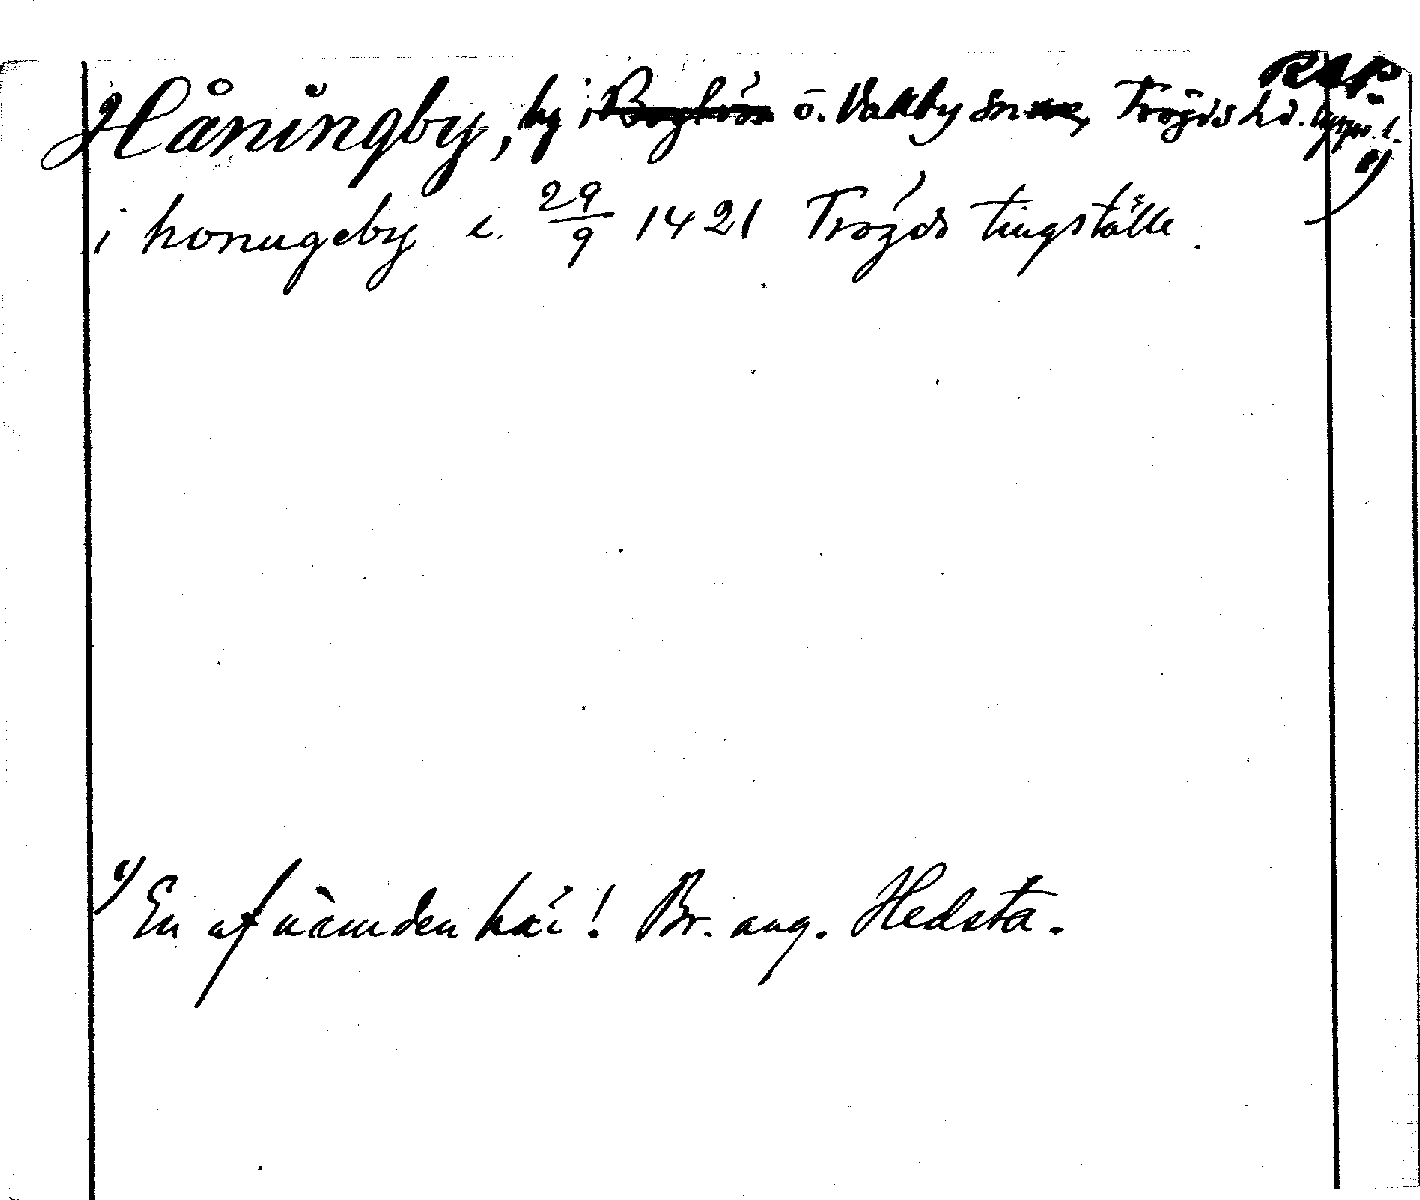 RAP.
Håningby, by i Boglösa o. Vallby snar, Trögds hd. Upps. l.
i honugeby c. 29/9 1421 Trögds tingställe. 1)
1) En af nämden här! Br. ang. Hedsta.